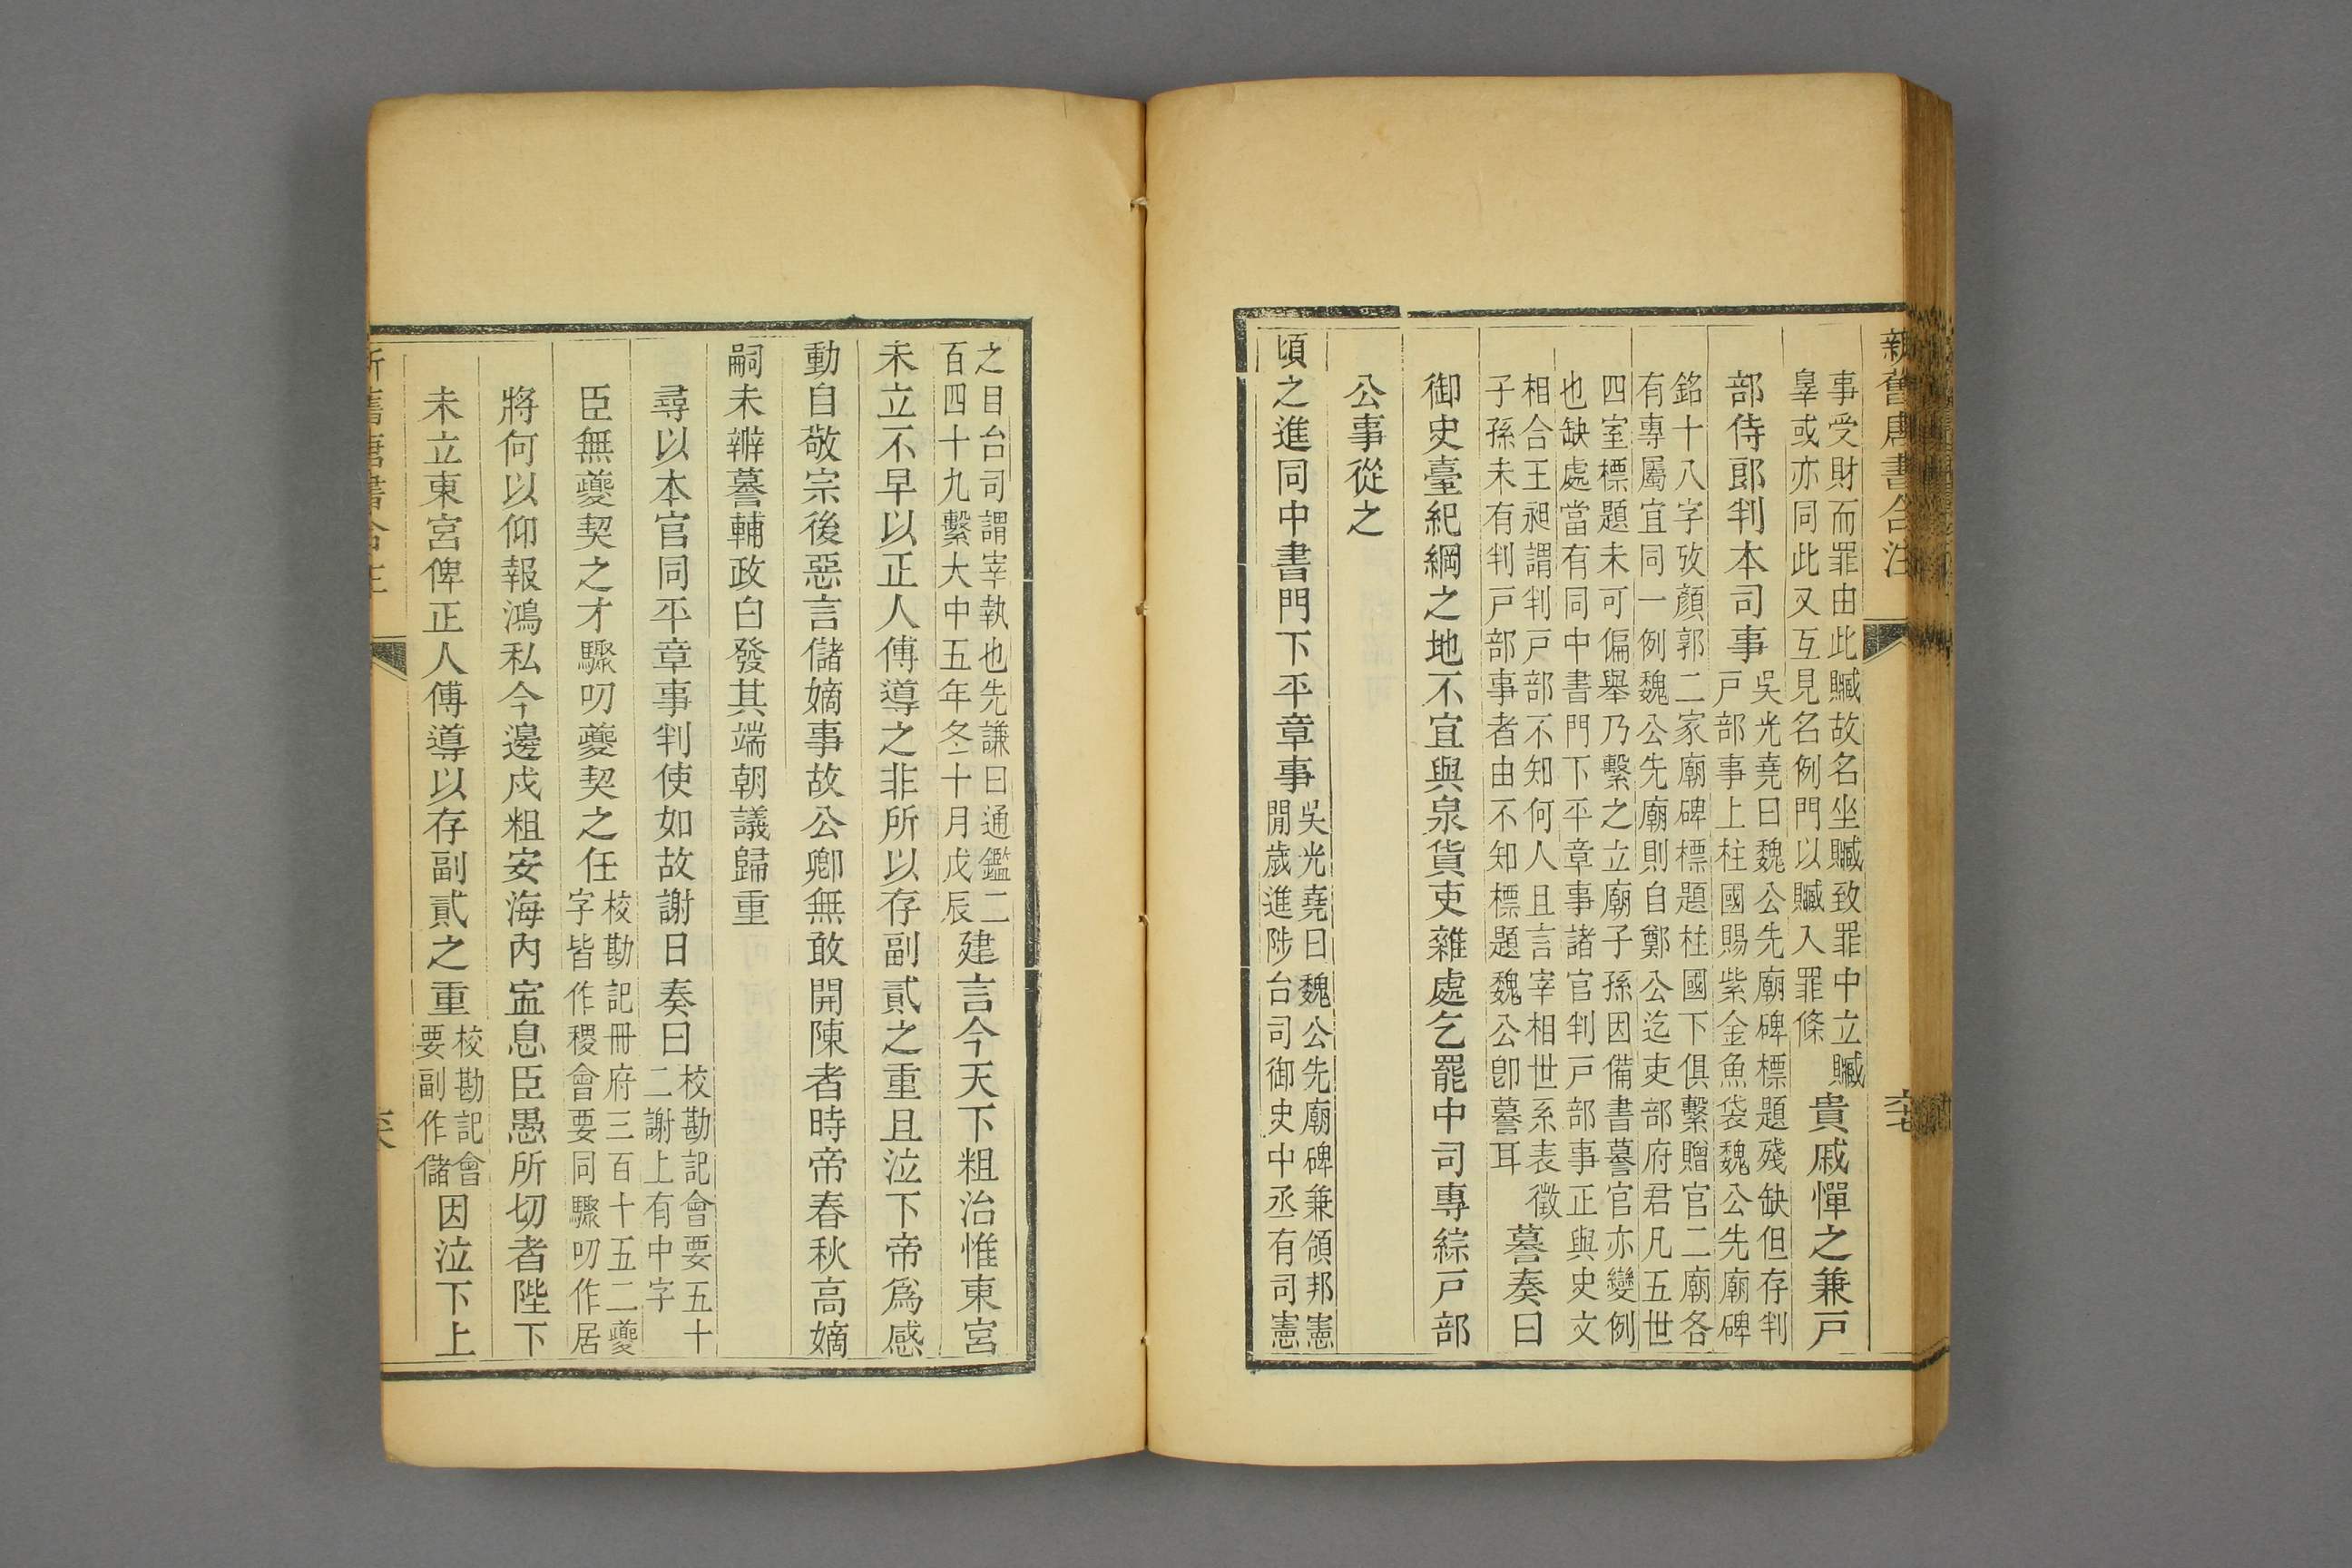 事受財而罪由此贓故名坐贓致罪中立贓
辠或亦同此又互見名例門以贓入罪條
貴戚憚之兼戸
部侍郎判本司事
吳光堯曰魏公先廟碑標題殘缺但存判
戸部事上柱國賜紫金魚袋魏公先廟碑
銘十八字攷顏郭二家廟碑標題柱國下俱繫贈官二廟各
有專屬宜同一例魏公先廟則自鄭公迄吏部府君凡五世
四室標題未可偏舉乃繫之立廟子孫因備書謩官亦變例
也缺處當有同中書門下平章事諸官判戸部事正與史文
相合王昶謂判戸部不知何人且言宰相世系表徵
子孫未有判戸部事者由不知標題魏公卽謩耳
謩奏曰
御史臺紀綱之地不宜與泉貨吏雜處乞罷中司專綜戸部
公事從之
頃之進同中書門下平章事
吳光堯曰魏公先廟碑兼領邦憲
閒歲進陟台司御史中丞有司憲
之目台司謂宰執也先謙曰通鑑二
百四十九繫大中五年冬十月戊辰
建言今天下粗治惟東宮
未立不早以正人傅導之非所以存副貳之重且泣下帝爲感
動自敬宗後惡言儲嫡事故公卿無敢開陳者時帝春秋高嫡
嗣未辨謩輔政白發其端朝議歸重
尋以本官同平章事判使如故謝日奏曰
校勘記會要五十
二謝上有中字
臣無夔契之才驟叨夔契之任
校勘記冊府三百十五二夔
字皆作稷會要同驟叨作居
將何以仰報鴻私今邊戍粗安海內寍息臣愚所切者陛下
未立東宮俾正人傅導以存副貳之重
校勘記會
要副作儲
因泣下上